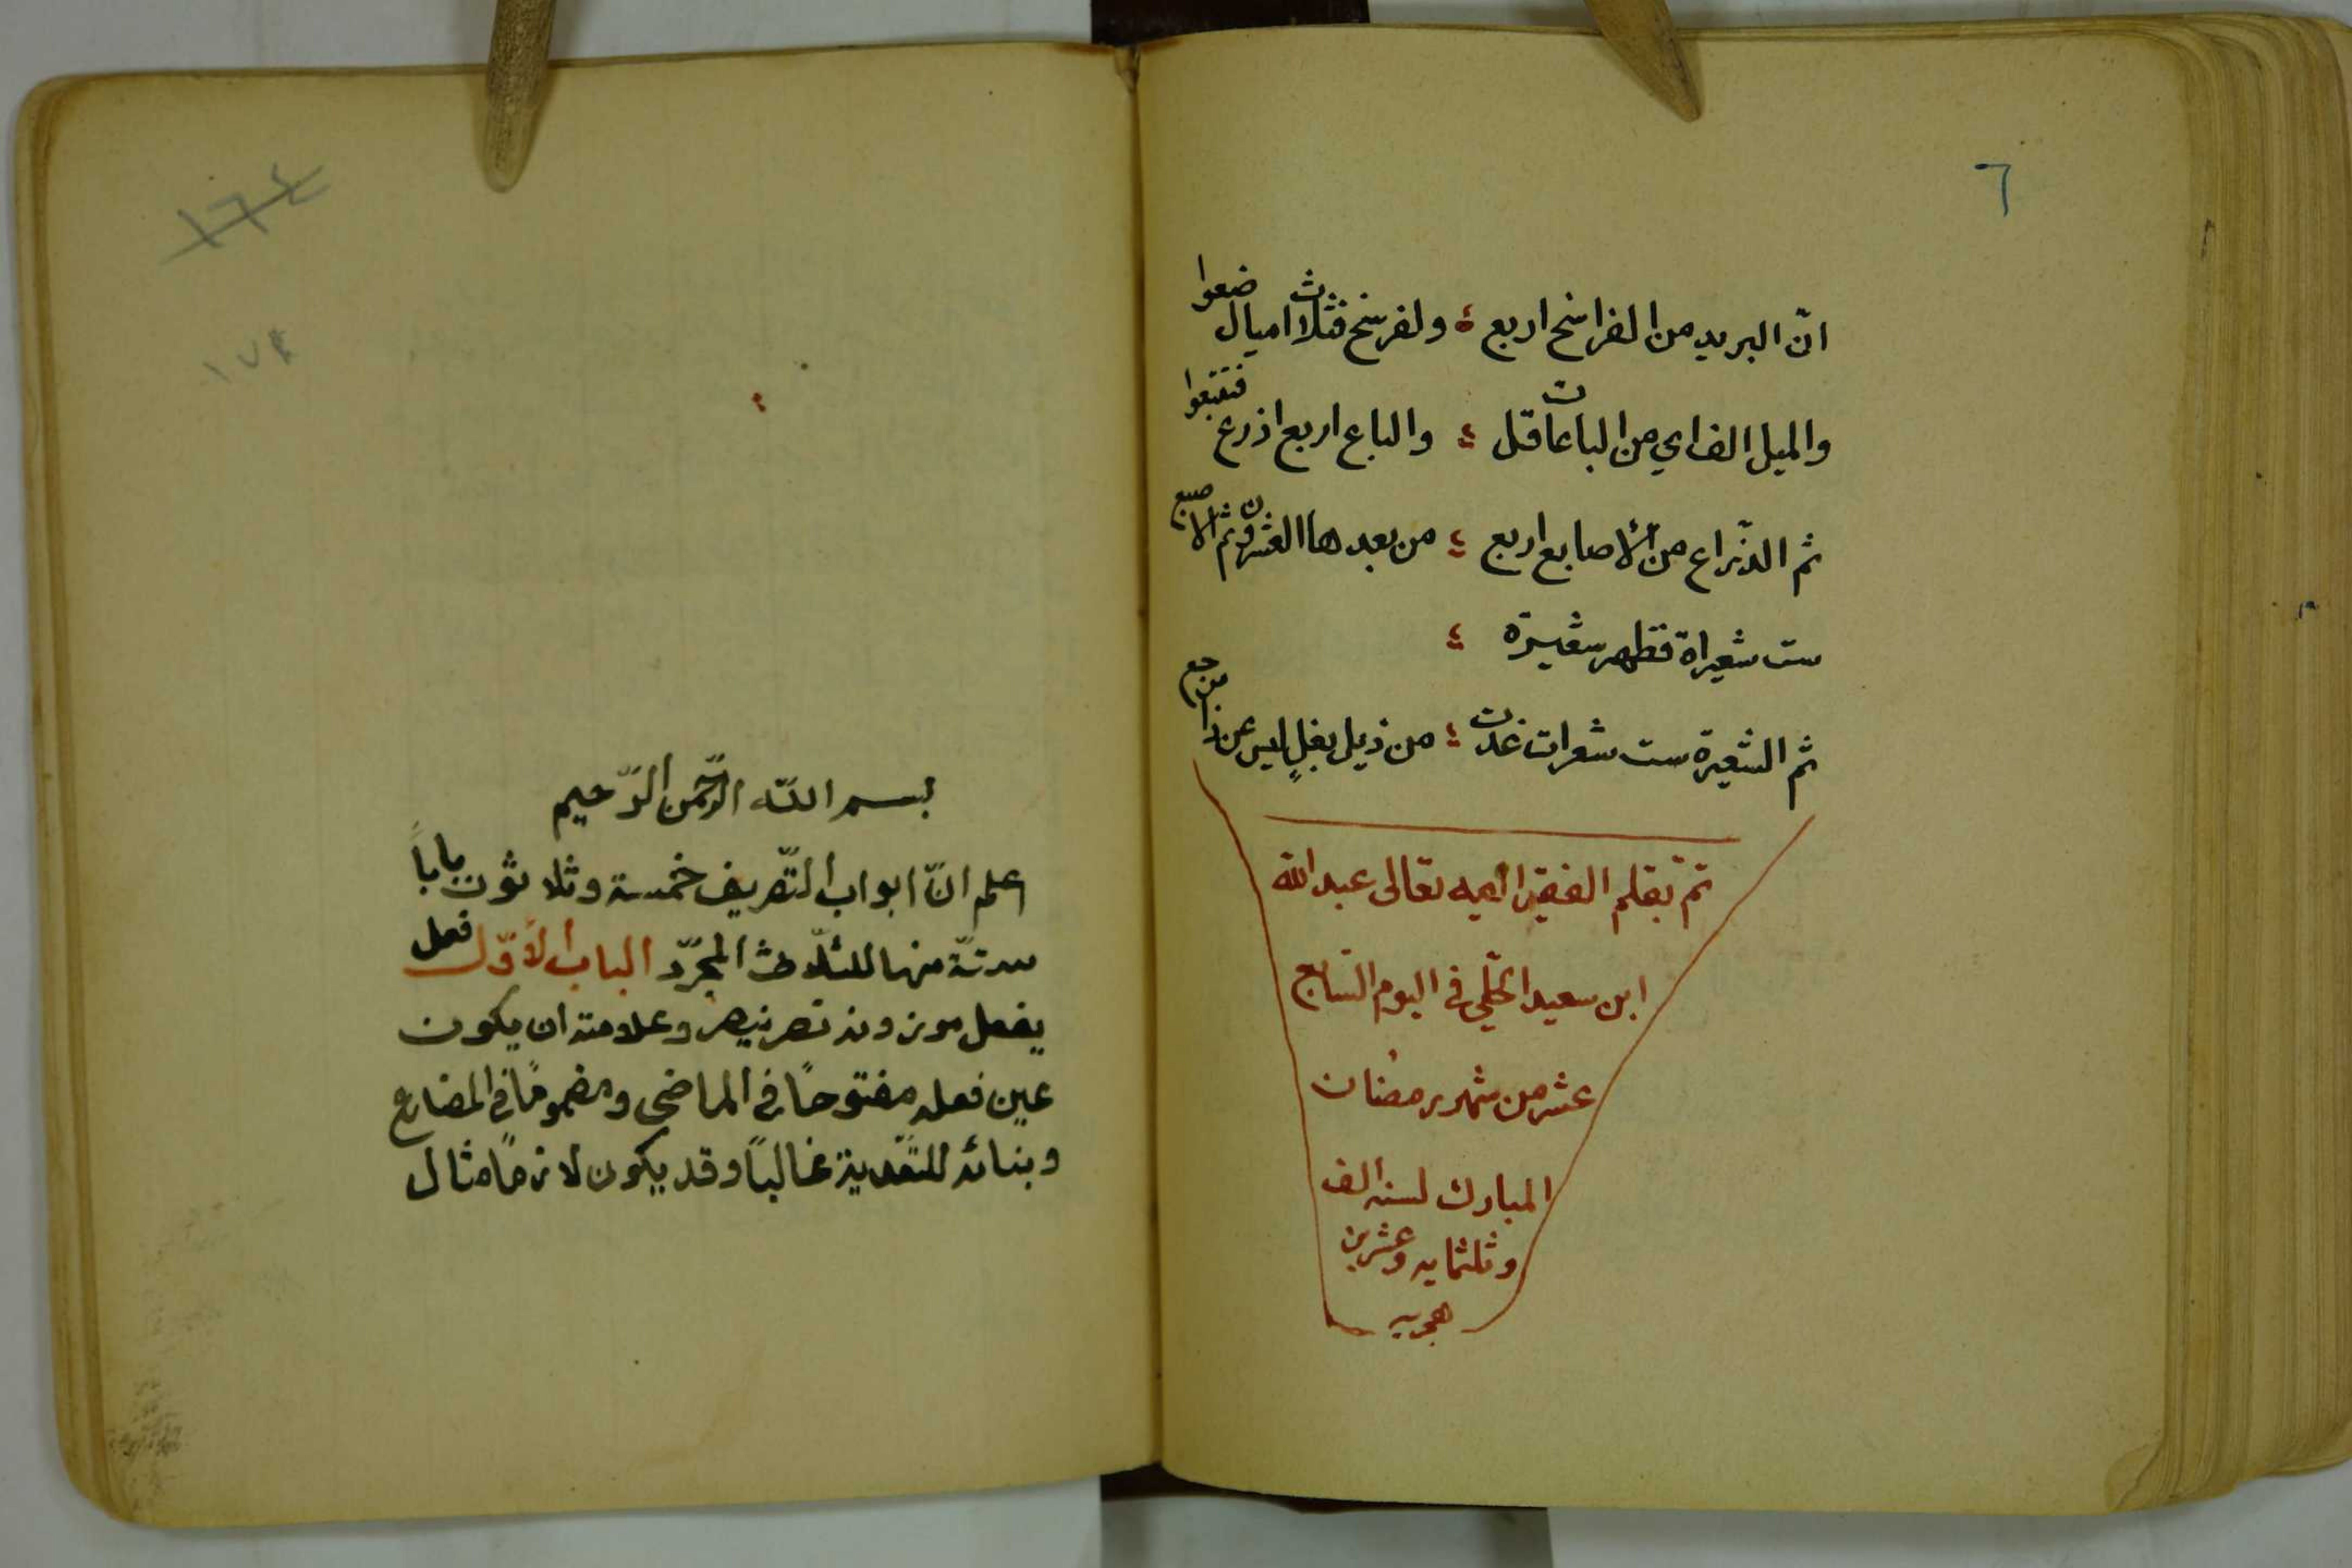 ٦
انّ البريد من الفراسخ اربع ؛ ولفرسخ فثلاث اميال ضعوا
والميل الف اي من الباعات قل ؛ والباع اربع اذرع فتتبعوا
ثم الذراع من الأصابع اربع ؛ من بعدها العشرون ثم الاصبع
ست شعيراة فظهر شعيرة ؛
ثم الشعيرة ست شعرات غدت ؛ من ذيل بغلٍ ليس عن ذا من رجع
تمّ بقلم الفقير اليه تعالى عبد الله
ابن سعيد في اليوم السّابع
عشر من شهر رمضان
المبارك لسنه الف
وثلثمايه وعشرين
هجريه
١٦٤
١٧٤
بسم اللّه الرّحمن الرّحيم
اعلم انّ ابواب التّصريف خمسة وثلاثون باباً
ستّة منها للثلّاث المجرّد الباب الأوّل فعل
يفعل موزونه نصر ينصر وعلامته ان يكون
عين فعله مفتوحاً في الماضى ومضموماً في المضارع
وبنائه للتّعدية غالباً وقد يكون لازماً مثال